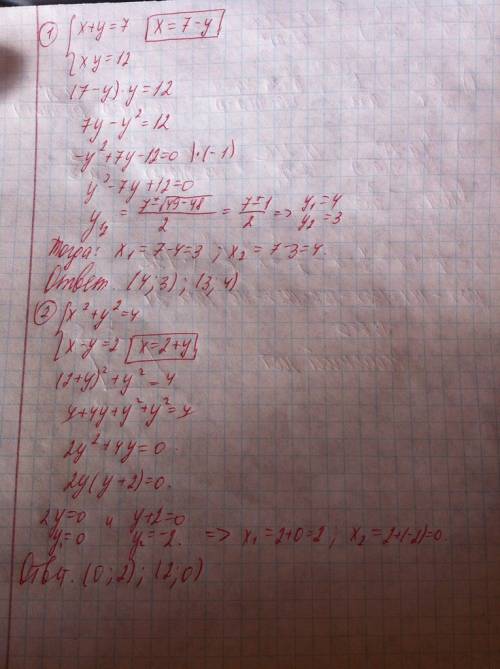 ① { x+y=7 x=7-y
xy=12
(7-y)·y=12
7y-y²=12
-y²+7y-12=0 |·(-1)
y²-7y+12=0
y½ = 7±√49-48 / 2 = 7±1 / 2 => y₁=4 y₂=3
Тогда: x₁=7-4=3 ; x₂=7-3=4.
Ответ. (4;3); (3;4)
② { x²+y²=4
x-y=2 x=2+y
(2+y)²+y²=4
4+4y+y²+y²=4
2y²+4y=0
2y(y+2)=0.
2y=0 и y+2=0
y₁=0 y₂=-2. => x₁=2+0=2; x₂=2+(-2)=0.
Ответ. (0;2); (2;0)